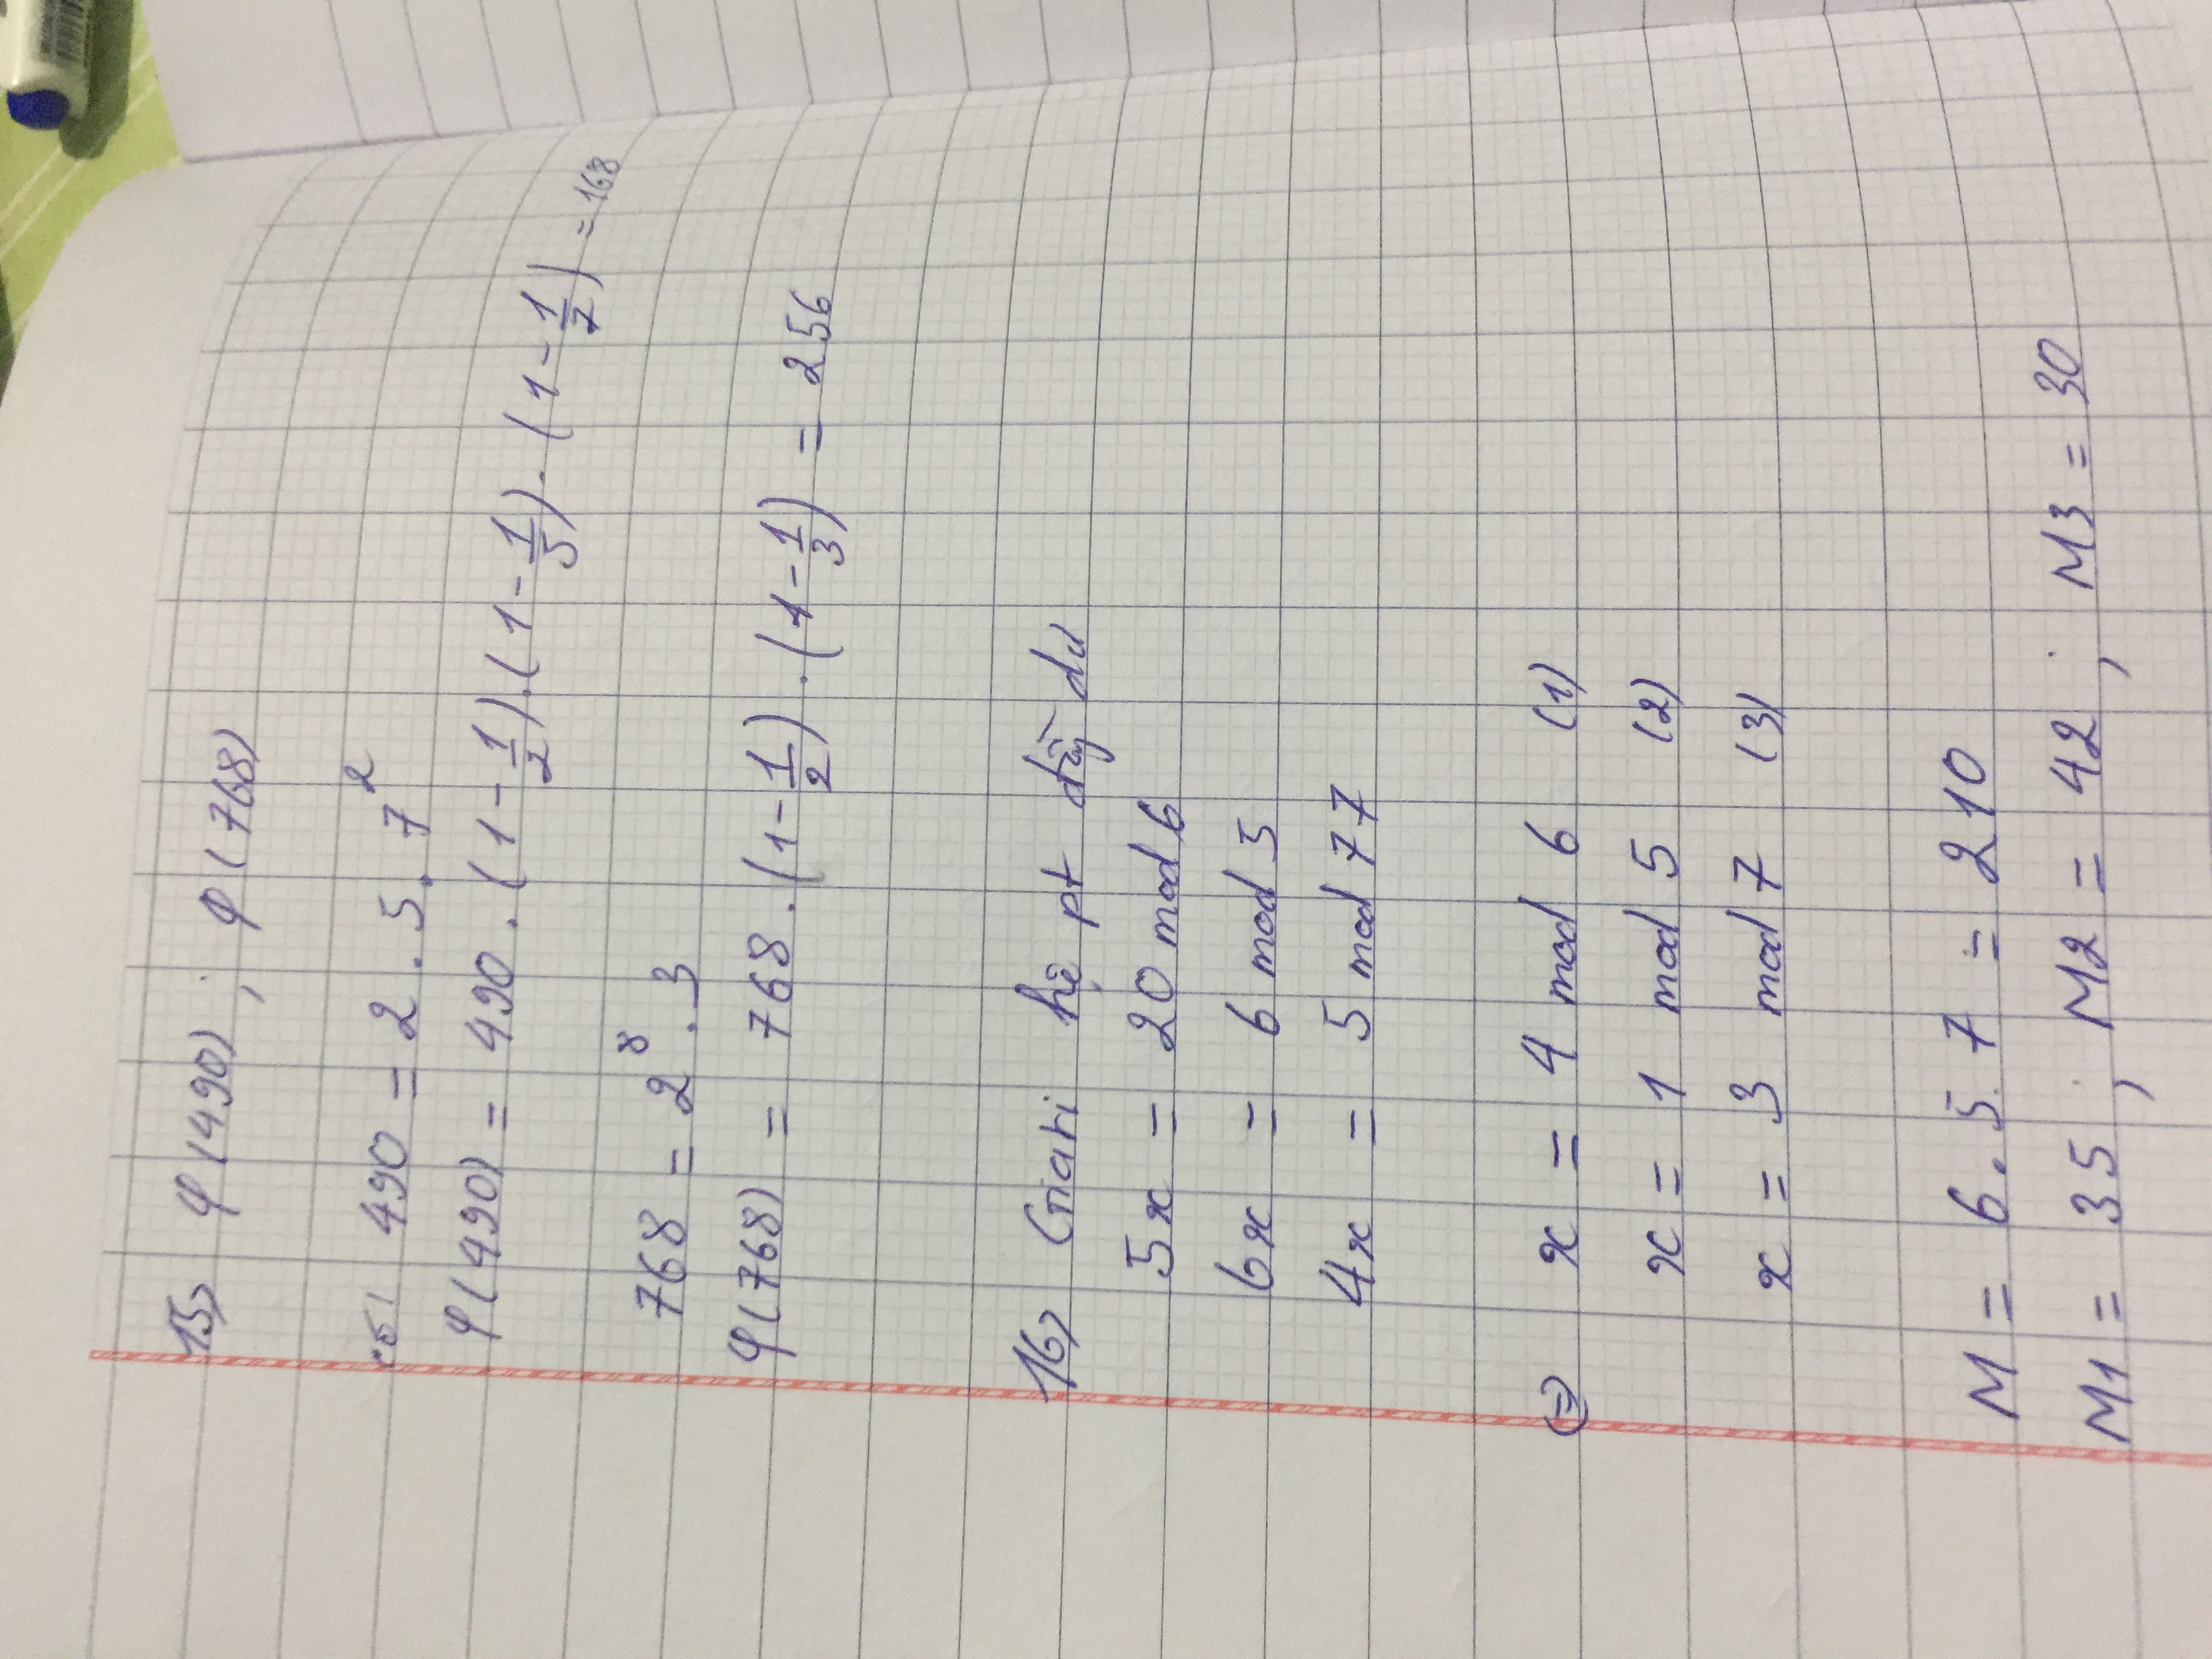 15> φ(490) ; φ(768)
490 = 2 . 5 . 7²
φ(490) = 490 . (1 - 1/2) . (1 - 1/5) . (1 - 1/7) = 168
768 = 2⁸ . 3
φ(768) = 768 . (1 - 1/2) . (1 - 1/3) = 256
16> Giải hệ pt đồg dư
5x = 20 mod 6
6x = 6 mod 5
4x = 5 mod 77
⇔ x = 4 mod 6 (1)
x = 1 mod 5 (2)
x = 3 mod 7 (3)
M = 6 . 5 . 7 = 210
M1 = 35 ; M2 = 42 ; M3 = 30